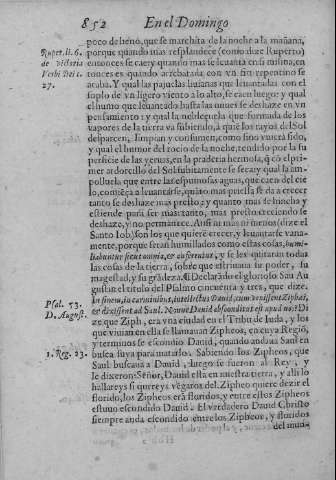 852 En el Domingo
poco de heno, que se marchita de la noche a la mañana,
Ruper. li. 6. porque quando mas resplandece (como dize Ruperto)
de victoria entonces se cae y quanto mas se leuanta en si misma, en
Verbi Dei c. tonces es quando arrebatada con vn fin repentino se
27. acaba. Y qual las pajuelas liuianas que leuantadas con el
soplo de vn ligero viento a lo alto, se caen luego: y qual
el humo que leuantado hasta las nuues se deshaze en vn
pensamiento: y qual la nieblezuela que formada de los
vapores de la tierra va subiendo, a quie los rayos del Sol
desparcen, limpian y consumen, como sino vuiera sido,
y qual el humor del rocio de la noche, tendido por la su
perficie de las yeruas, en la praderia hermosa, q̃ cõ el pri-
mer ardorcillo del Sol subitamente se seca: y qual la am-
polluela que entre las espumosas aguas, que caen del cie
lo, comiẽça a leuantarse, quãto mas priessa se da a crecer
tanto se deshaze mas presto: y quanto mas se hincha y
estiende para ser mas: tanto, mas presto creciendo se
deshaze, y no permanece. Assi ni mas ni menos (dize el
Santo Iob) son los que quierẽ crecer, y leuantarse vana-
mente, porque seran humillados como estas cosas, humi-
liabuntur sicut omnia, & auferentur, y se les quitaran todas
las cosas de la tierra, sobre que estriuaua su poder, su
magestad, y su grãdeza. Declarado el glorioso San Au
gustin el titulo del Psalmo cincuenta y tres, que dize:
Psal. 53. In finem, in carminibus, intellectus Dauid, cum venissent Ziphæi,
D. August. & dixissent ad Saul. Nonne Dauid absconditus est apud nos? Di
ze que Ziph, era vna ciudad en el Tribu de Iuda, y los
que viuian en ella se llamauan Zipheos, en cuya Regiõ,
y terminos se escondio Dauid, quando andaua Saul en
1. Reg. 23. busca suya para matarlo. Sabiendo los Zipheos, que
Saul buscaua a Dauid, luego se fueron al Rey, y
le dixeron: Señor, Dauid esta en nuestra tierra, y alli lo
hallareys si quereys vẽgaros del. Zipheo quiere dezir el
florido, los Zipheos erã floridos, y entre estos Zipheos
estuuo escondido Dauid. El verdadero Dauid Christo
siempre anda escondido entre los Zipheos, y floridos
del mun-